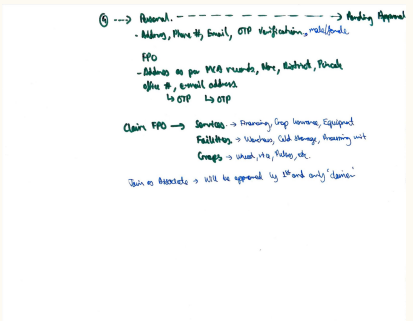 ④ ---> Personal. - - - - - - - - - - - - - - - -> Pending Approval
- Address, Phone #, Email, OTP verification, male/female
FPO
- Address as per MCA records, Name, District, Pincode
office #, e-mail address
↳ OTP ↳ OTP
Claim FPO → Services → Financing, Crop Insurance, Equipment
Facilities → Warehouse, Cold storage, Processing unit
Crops → Wheat, rice, Pulses, etc.
Join as Associate → Will be approved by 1st and only 'claimer'